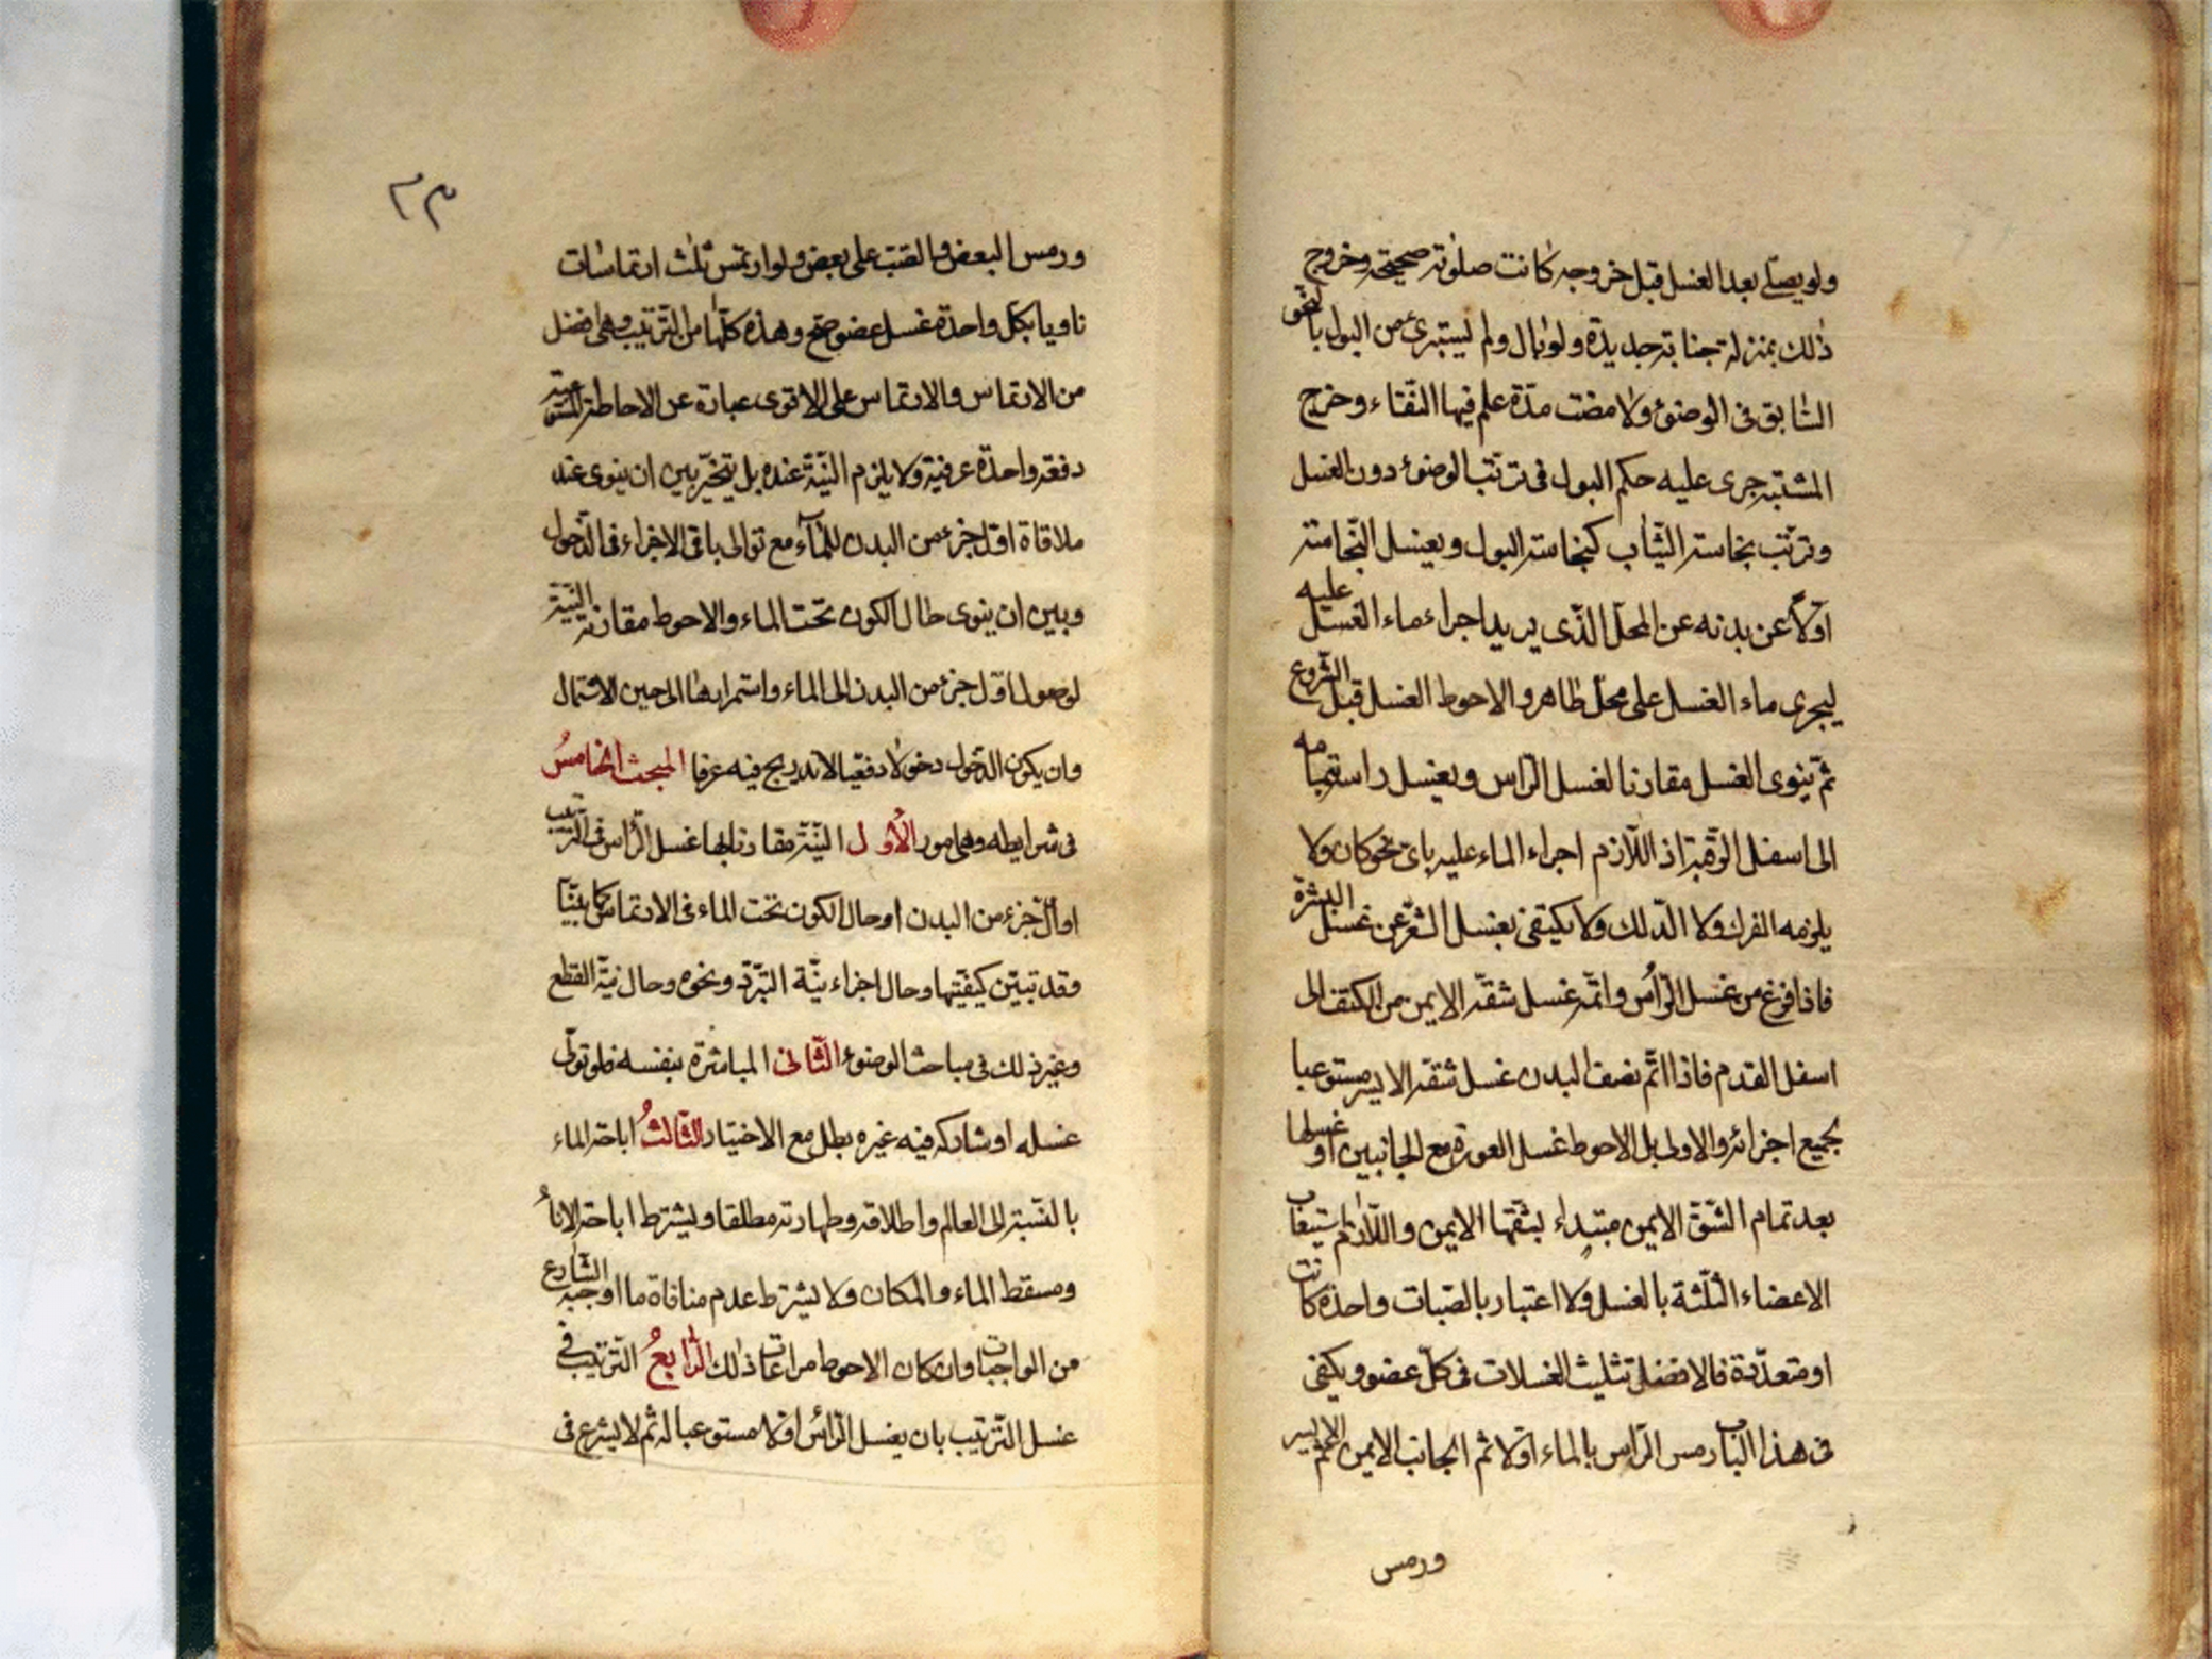 ولو يصلّي بعد الغسل قبل خروجه كانت صلوته صحيحة وخروج
ذلك بمنزلة جنابة جديدة ولو بال ولم يستبرئ من البول بالنحو
السّابق في الوضوء ولا مضت مدّة علم فيها النّقاء وخرج
المشتبه جرى عليه حكم البول في ترتّب الوضوء دون الغسل
وترتّب نجاسة الثّياب كنجاسة البول ويغسل النّجاسة
اوّلا عن بدنه عن المحلّ الّذي يريد اجراء ماء الغسل عليه
ليجرى ماء الغسل على محلّ طاهر والاحوط الغسل قبل الشّروع
ثمّ ينوى الغسل مقارنا لغسل الرّاس ويغسل راسه بتمامه
الى اسفل الرّقبة اذ اللّازم اجراء الماء عليه باىّ نحو كان ولا
يلزمه الفرك ولا الدّلك ولا يكتفى بغسل الشّعر عن غسل البشرة
فاذا فرغ من غسل الرّأس واتمّه غسل شقّه الايمن من الكتف الى
اسفل القدم فاذا اتمّ نصف البدن غسل شقّه الايسر مستوعبا
لجميع اجزائه والاولى بل الاحوط غسل العورة مع الجانبين او غسلها
بعد تمام الشّقّ الايمن مبتداء بشقّها الايمن واللّازم استيعاب
الاعضاء الثّلثة بالغسل ولا اعتبار بالصّبات واحدة كانت
او متعدّدة فالافضل تثليث الغسلات في كلّ عضو ويكفى
في هذا الباب رمس الرّاس بالماء اوّلا ثم الجانب الايمن ثمّ الايسر
ورمس
٢٣
ورمس البعض والصّبّ على بعض ولو ارتمس ثلث ارتماسات
ناويا بكلّ واحدة غسل عضو صحّ وهذه كلّها من التّرتيب وهى افضل
من الارتماس والارتماس على الاقوى عبارة عن الاحاطة
دفعة واحدة عرفيّة ولا يلزم النّيّة عنده بل يتخيّر بين ان ينوى عند
ملاقاة اوّل جزء من البدن للماء مع توالى باقى الاجزاء في الدّخول
وبين ان ينوى حال الكون تحت الماء والاحوط مقارنة النّيّة
لوصول اوّل جزء من البدن الى الماء واستمرارها الى حين الاشتمال
وان يكون الدّخول دخولا دفعيّا لا تدريج فيه عرفا المبحث الخامسُ
في شرايطه وهى امور الأوّل النّيّة مقارنا بها غسل الرّأس في التّرتيب
او اوّل جزء من البدن او حال الكون تحت الماء في الارتماس كما بيّنّا
وقد تبيّن كيفيّتها وحال اجزاء نيّة التبرّد ونحوه وحال نيّة القطع
وغير ذلك في مباحث الوضوء الثّانى المباشرة بنفسه فلو تولّى
غسله او شاركه فيه غيره بطل مع الاختيار الثّالثُ اباحة الماء
بالنّسبة الى العالم واطلاقه وطهارته مطلقا ويشترط اباحة الاناء
ومسقط الماء والمكان ولا يشترط عدم منافاة ما اوجبه الشّارع
من الواجبات وان كان الاحوط مراعات ذلك الرّابعُ التّرتيب في
غسل التّرتيب بان يغسل الرّأس اوّلا مستوعبا له ثم لا يشرع في